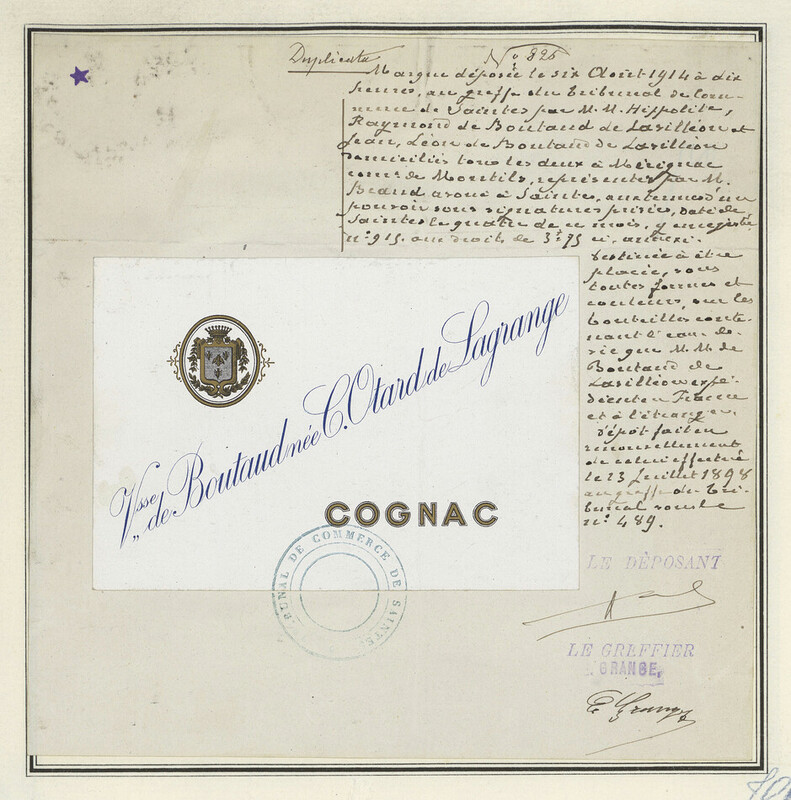 Duplicata
N° 826
Marque déposée le six Août 1914 à dix
heures, au greffe du Tribunal de Com-
merce de Saintes par M.M. Hippolite,
Raymond de Boutaud de Lavilléon et
Jean, Léon de Boutaud de Lavilléon
domiciliés tous les deux à Mérignac
comne de Montils, représentés par M.
Braud avoué à Saintes, aux termes d'un
pouvoir sous signatures privées, daté de
Saintes le quatre de ce mois, y enregistré
n° 915. aux droits de 3f75 ci. annexé.
Destinée à être
placée, sous
toutes formes et
couleurs, sur les
bouteilles conte-
nant l'eau de
vie que M.M. de
Boutaud de
Lavilléon expé-
dient en France
et à l'étranger.
Dépôt fait en
renouvellement
de celui effectué
le 23 Juillet 1898
au greffe du Tri-
bunal sous le
n° 489.
Vsse de Boutaud née C. Otard de Lagrange
COGNAC
TRIBUNAL DE COMMERCE DE SAINTES
LE DÉPOSANT
LE GREFFIER
GRANGE,
E Grange